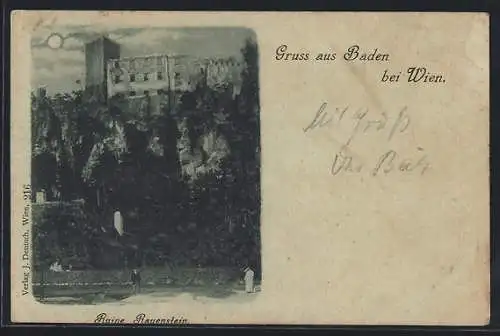 Gruss aus Baden
bei Wien.
Mit Gruß
Verlag J. Wien. 216
Ruine Rauenstein.